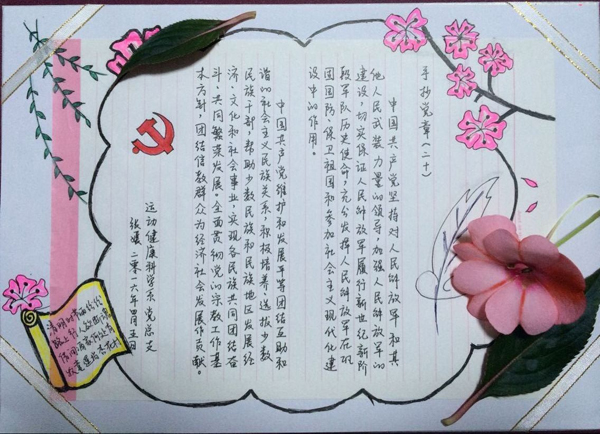 手抄党章（二十）
中国共产党坚持对人民解放军和其
他人民武装力量的领导，加强人民解放军的
建设，切实保证人民解放军履行新世纪新阶
段军队历史使命，充分发挥人民解放军在巩
固国防、保卫祖国和参加社会主义现代化建
设中的作用。
中国共产党维护和发展平等团结互助和
谐的社会主义民族关系，积极培养、选拔少数
民族干部，帮助少数民族和民族地区发展经
济、文化和社会事业，实现各民族共同团结奋
斗、共同繁荣发展。全面贯彻党的宗教工作基
本方针，团结信教群众为经济社会发展作贡献。
运动健康科学系党总支
二零一六年四月五日
清明时节雨纷纷
路上行人欲断魂
借问酒家何处有
牧童遥指杏花村